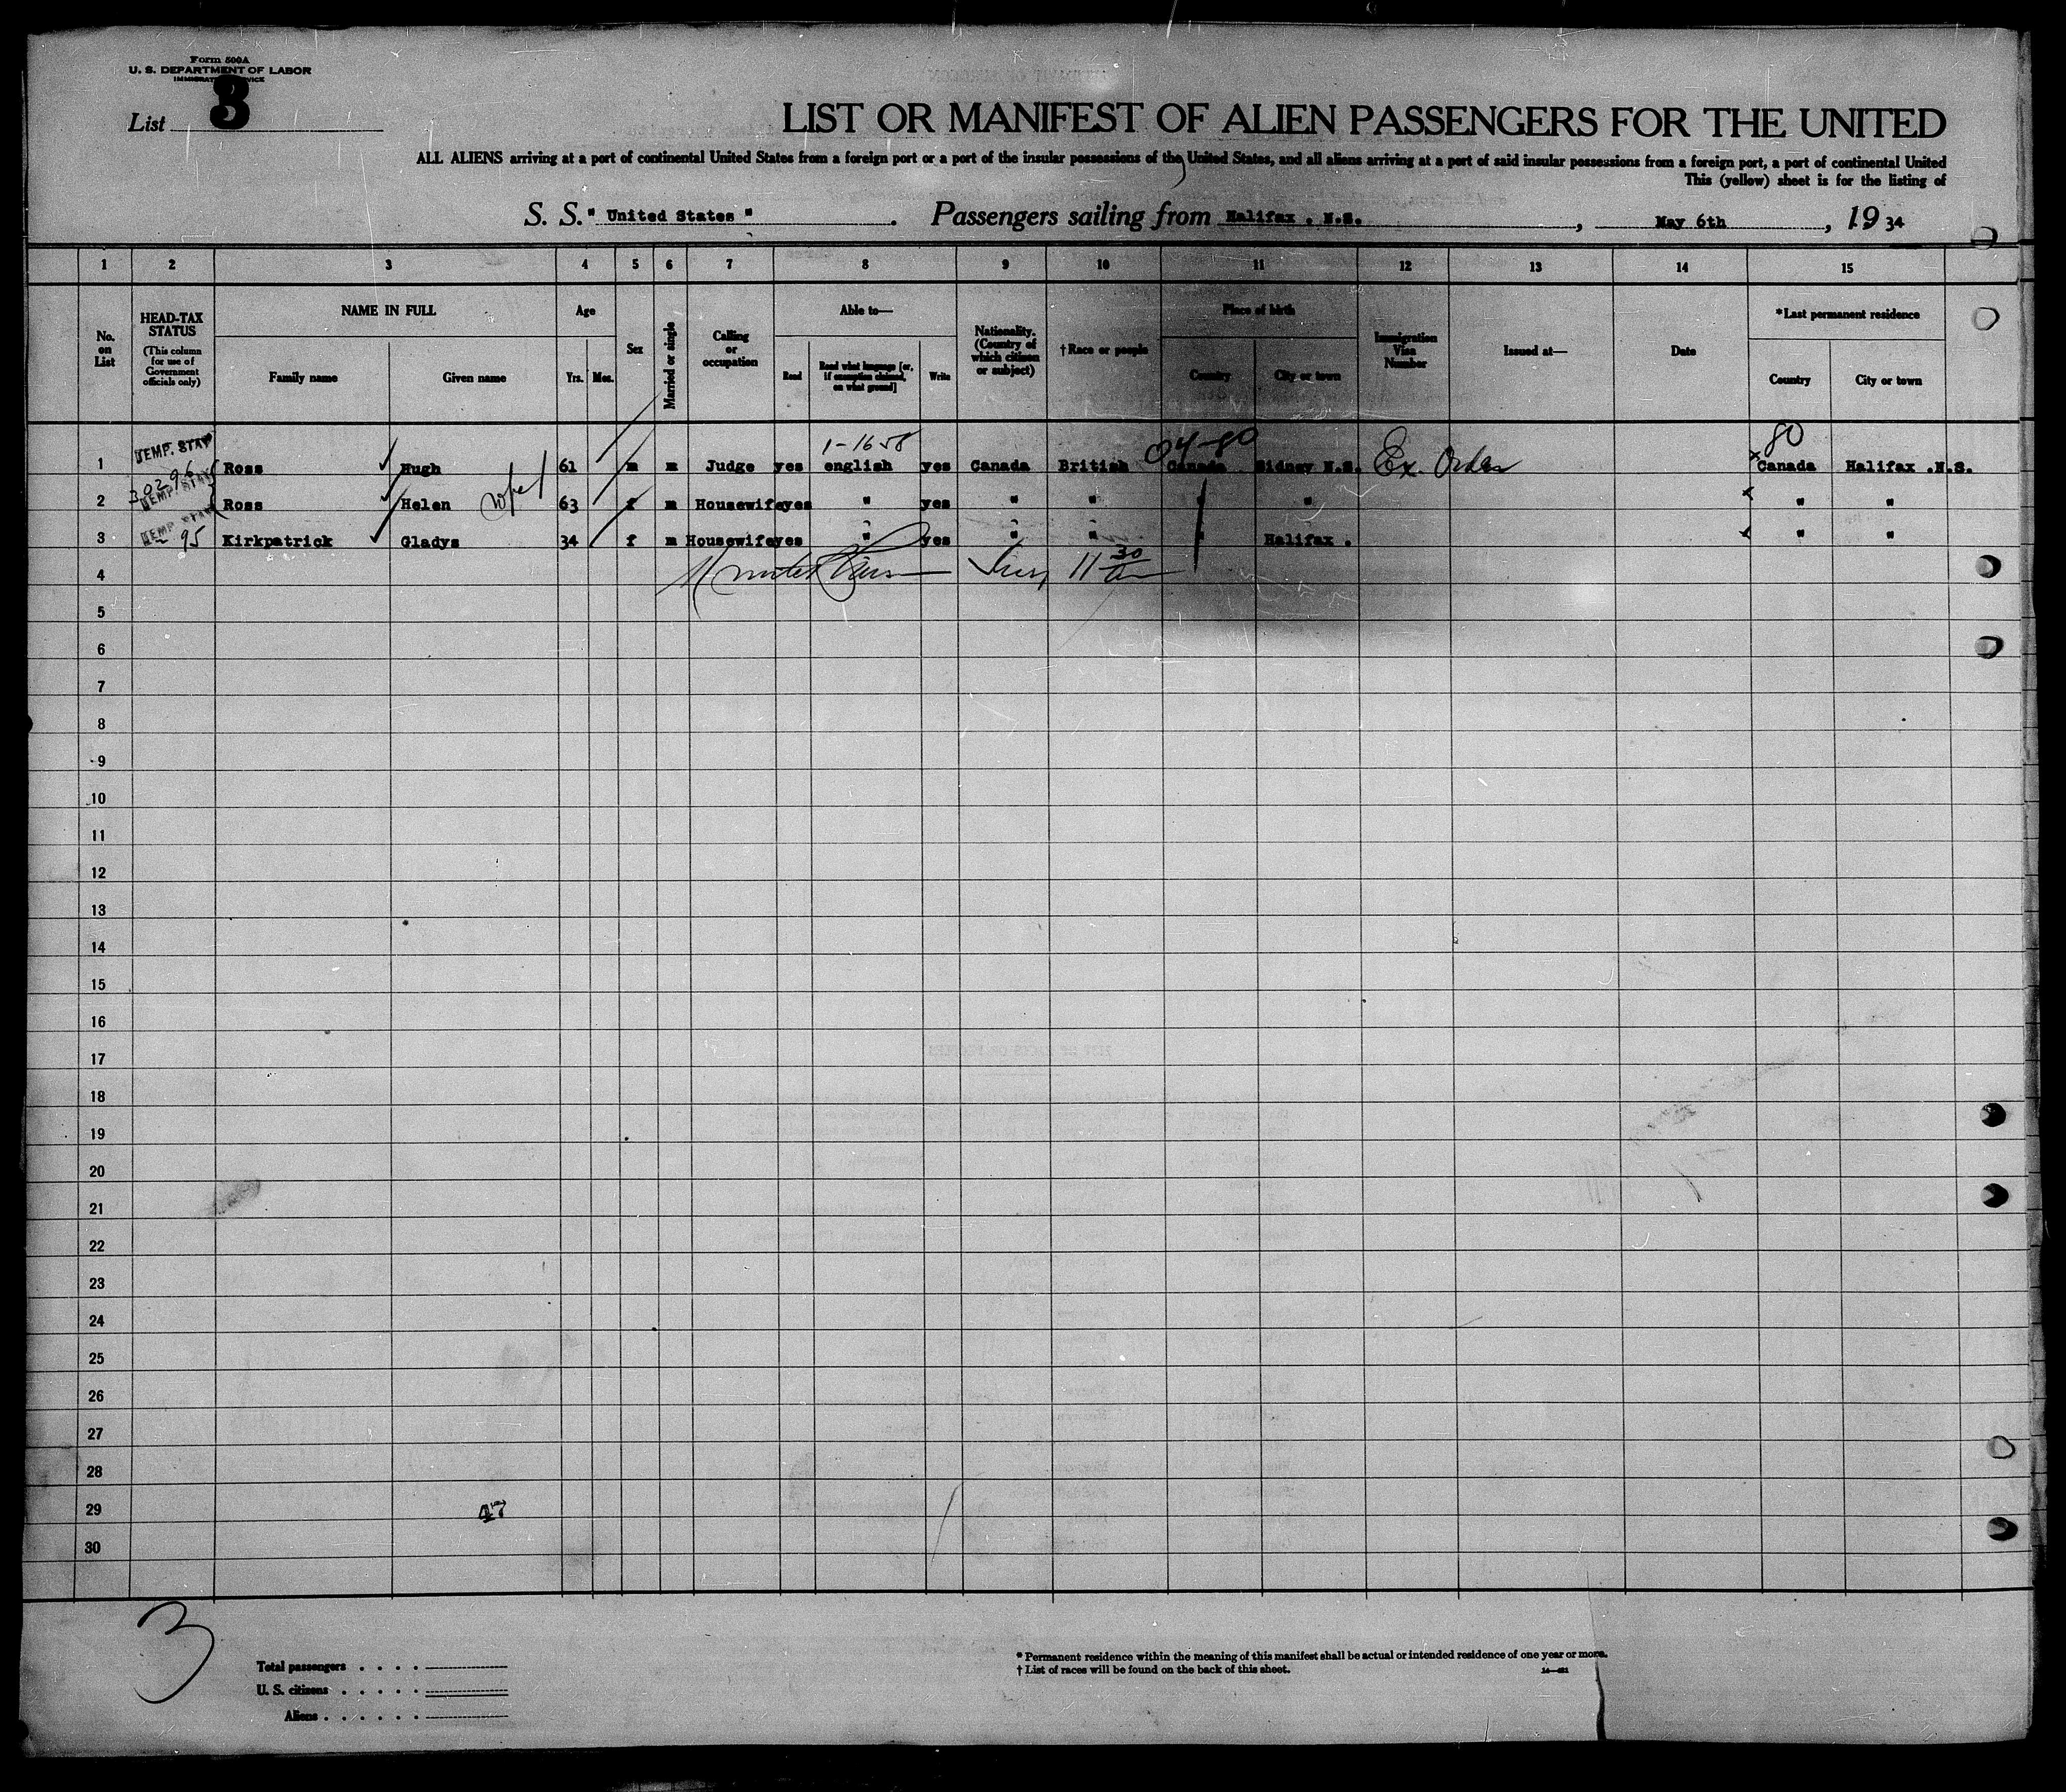 Form 500A
U. S. DEPARTMENT OF LABOR
IMMIGRATION SERVICE
List 3
LIST OR MANIFEST OF ALIEN PASSENGERS FOR THE UNITED
ALL ALIENS arriving at a port of continental United States from a foreign port or a port of the insular possessions of the United States, and all aliens arriving at a port of said insular possessions from a foreign port, a port of continental United
This (yellow) sheet is for the listing of
S. S. " United States " . Passengers sailing from Halifax . N.S. , May 6th , 19 34
1 2 3 4 5 6 7 8 9 10 11 12 13 14 15
No. on List
HEAD-TAX STATUS
(This column for use of Government officials only)
NAME IN FULL
Family name
Given name
Age
Yrs.
Mos.
Sex
Married or single
Calling or occupation
Able to—
Read
Read what language [or, if exemption claimed, on what ground]
Write
Nationality. (Country of which citizen or subject)
†Race or people
Place of birth
Country
City or town
Immigration Visa Number
Issued at—
Date
*Last permanent residence
Country
City or town
TEMP. STAY 1-1658 04-80 80
1 Ross Hugh 61 m m Judge yes english yes Canada British Canada Sidney N.S. Ex. Order Canada Halifax .N.S.
30296 TEMP. STAY
2 Ross Helen wife 63 f m Housewife yes " yes " " " " "
TEMP STAY
3 95 Kirkpatrick Gladys 34 f m Housewife yes " yes " " " Halifax . " "
4 11 30
5
6
7
8
9
10
11
12
13
14
15
16
17
18
19
20
21
22
23
24
25
26
27
28
29 47
30
3
Total passengers . . . .
U. S. citizens . . . . .
Aliens . . . . . .
* Permanent residence within the meaning of this manifest shall be actual or intended residence of one year or more.
† List of races will be found on the back of this sheet.